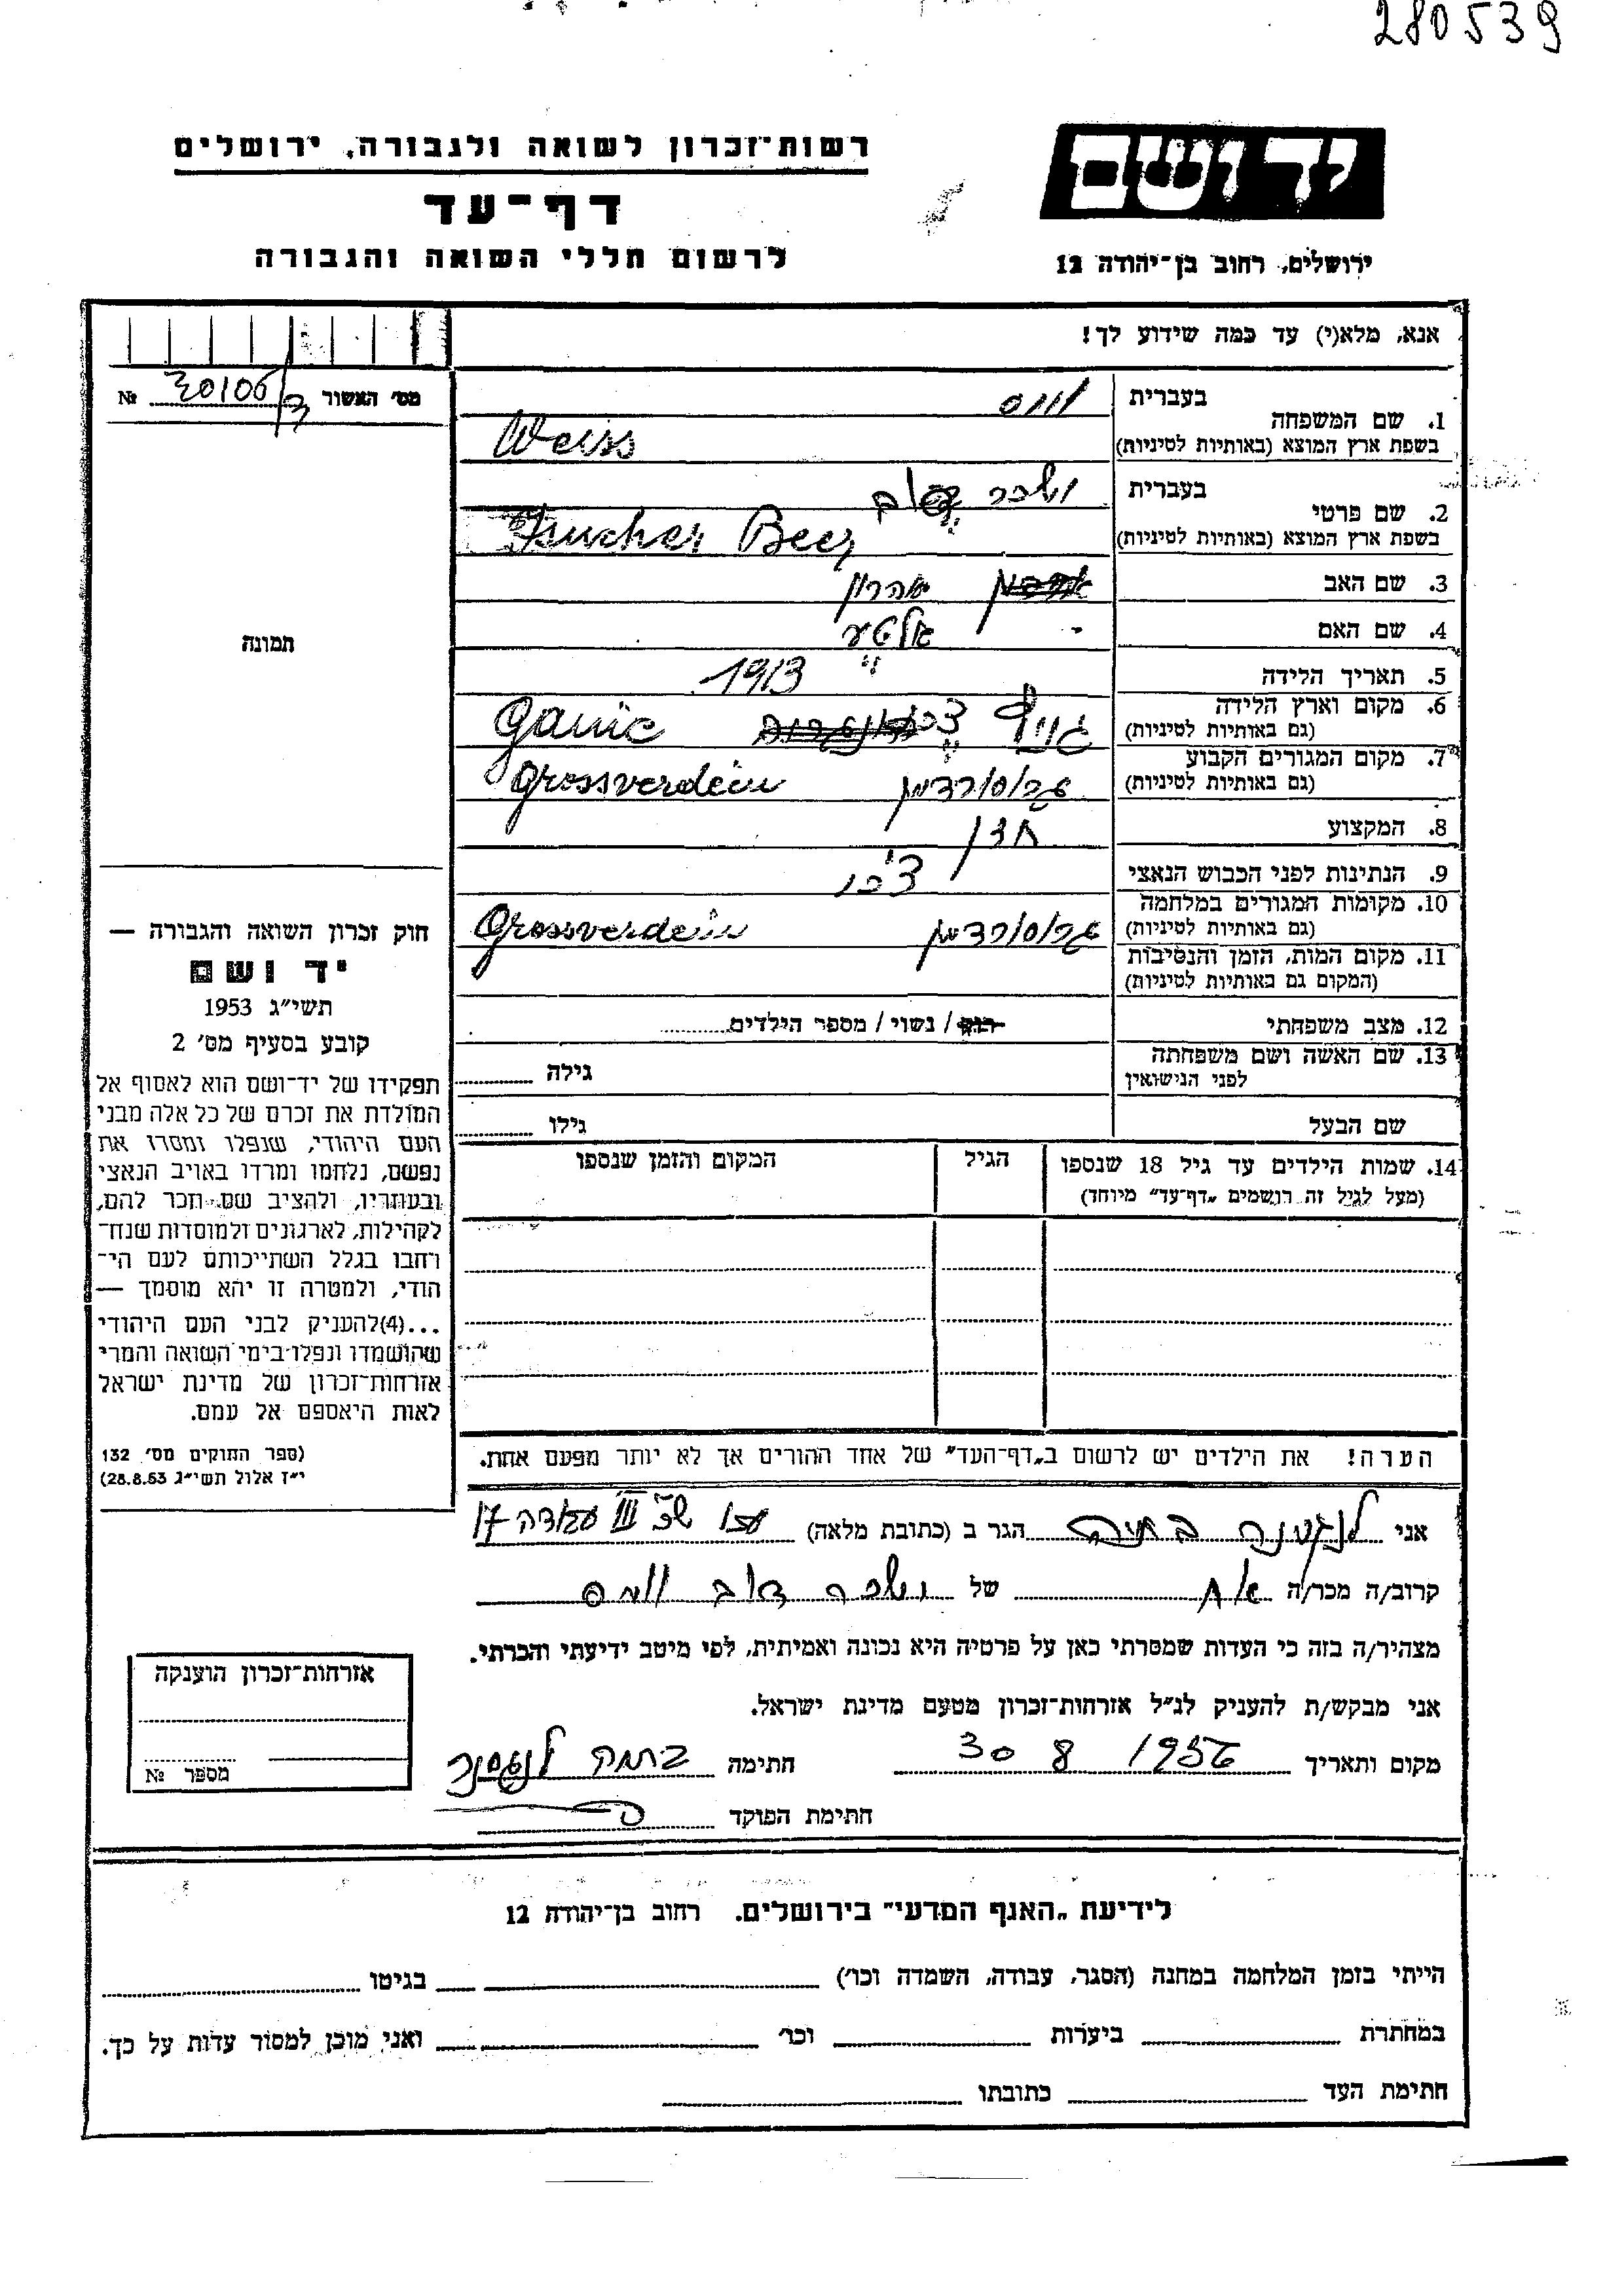 280539
רשות־זכרון לשואה ולגבורה, ירושלים
יד ושם
דף־עד
לרשום חללי השואה והגבורה
ירושלים, רחוב בן־יהודה 12
אנא, מלא(י) עד כמה שידוע לך!
מס׳ האשור № 30106/ד
1. שם המשפחה
בעברית ווייס
בשפת ארץ המוצא (באותיות לטיניות) Weiss
2. שם פרטי
בעברית יששכר דוב
בשפת ארץ המוצא (באותיות לטיניות) Isucher Beer
3. שם האב אהרון
4. שם האם אלטע
5. תאריך הלידה 1913
6. מקום וארץ הלידה
(גם באותיות לטיניות) Ganic
7. מקום המגורים הקבוע
(גם באותיות לטיניות) גרוסורדיין Grossverdein
8. המקצוע חזן
9. הנתינות לפני הכבוש הנאצי צ׳כי
10. מקומות המגורים במלחמה
(גם באותיות לטיניות) גרוסורדיין Grossverdein
11. מקום המות, הזמן והנסיבות
(המקום גם באותיות לטיניות)
12. מצב משפחתי רווק / נשוי / מספר הילדים
13. שם האשה ושם משפחתה
לפני הנישואין גילה
שם הבעל גילו
14. שמות הילדים עד גיל 18 שנספו הגיל המקום והזמן שנספו
(מעל לגיל זה רושמים „דף־עד״ מיוחד)
הערה! את הילדים יש לרשום ב„דף־העד״ של אחד ההורים אך לא יותר מפעם אחת.
תמונה
חוק זכרון השואה והגבורה —
יד ושם
תשי״ג 1953
קובע בסעיף מס׳ 2
תפקידו של יד־ושם הוא לאסוף אל
המולדת את זכרם של כל אלה מבני
העם היהודי, שנפלו ומסרו את
נפשם, נלחמו ומרדו באויב הנאצי
ובעוזריו, ולהציב שם וזכר להם,
לקהילות, לארגונים ולמוסדות שנח־
רבו בגלל השתייכותם לעם הי־
הודי, ולמטרה זו יהא מוסמך —
...(4) להעניק לבני העם היהודי
שהושמדו ונפלו בימי השואה והמרי
אזרחות־זכרון של מדינת ישראל
לאות היאספם אל עמם.
(ספר החוקים מס׳ 132
י״ז אלול תשי״ג 28.8.53)
אני לנגסנר ברכה הגר ב (כתובת מלאה) שכ׳ III עבודה 17
קרוב/ה מכר/ה אח של יששכר דוב ווייס
מצהיר/ה בזה כי העדות שמסרתי כאן על פרטיה היא נכונה ואמיתית, לפי מיטב ידיעתי והכרתי.
אני מבקש/ת להעניק לנ״ל אזרחות־זכרון מטעם מדינת ישראל.
מקום ותאריך 30 8 1956 חתימה ברכה לנגסנר
חתימת הפוקד
אזרחות־זכרון הוענקה
מספר №
לידיעת „האגף המדעי״ בירושלים. רחוב בן־יהודה 12
הייתי בזמן המלחמה במחנה (הסגר, עבודה, השמדה וכו׳) בגיטו
במחתרת ביערות וכו׳ ואני מוכן למסור עדות על כך.
חתימת העד כתובתו